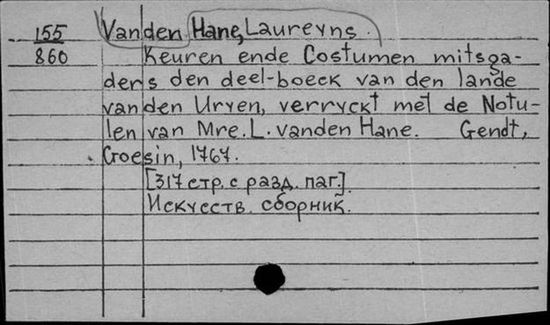 155 Vanden Hane, Laureyns.
860 Keuren ende Costumen mitsga-
ders den deel-boeck van den lande
vanden Uryen, verryckt met de Notu-
len van Mre. L. vanden Hane. Gendt,
Goesin, 1767.
[317 стр. с разд. паг.]
Искусств. сборник.